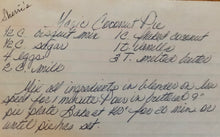 Sherri's
Magic Coconut Pie
1/2 C. bisquit mix 1 C flaked coconut
1/2 C. sugar 1 t. vanilla
4 eggs 3 T. melted butter
2 C. milk
Mix all ingredients in blender on low
speed for 1 minute. Pour in buttered 9"
pie plate. Bake at 400° for 20 min or
until pie is set.